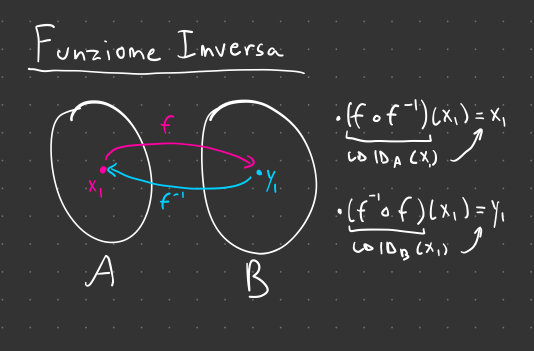 Funzione Inversa
f
x₁
y₁
f⁻¹
A
B
• (f ∘ f⁻¹)(x₁) = x₁
ID_A (x₁)
• (f⁻¹ ∘ f)(x₁) = y₁
ID_B (x₁)